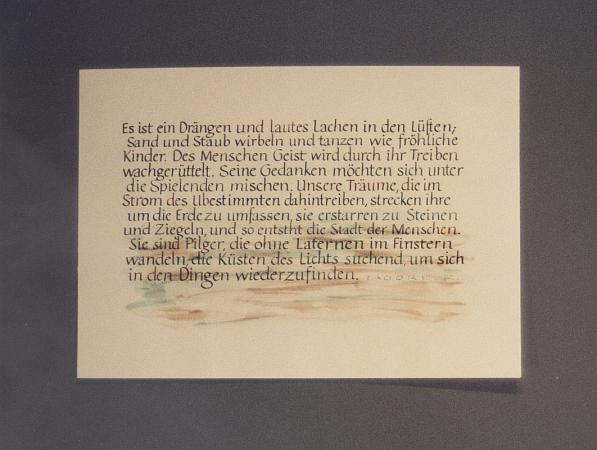 Es ist ein Drängen und lautes Lachen in den Lüften;
Sand und Staub wirbeln und tanzen wie fröhliche
Kinder. Des Menschen Geist wird durch ihr Treiben
wachgerüttelt. Seine Gedanken möchten sich unter
die Spielenden mischen. Unsere Träume, die im
Strom des Ubestimmten dahintreiben, strecken ihre
um die Erde zu umfassen, sie erstarren zu Steinen
und Ziegeln, und so entstht die Stadt der Menschen.
Sie sind Pilger, die ohne Laternen im Finstern
wandeln, die Küsten des Lichts suchend, um sich
in den Dingen wiederzufinden.